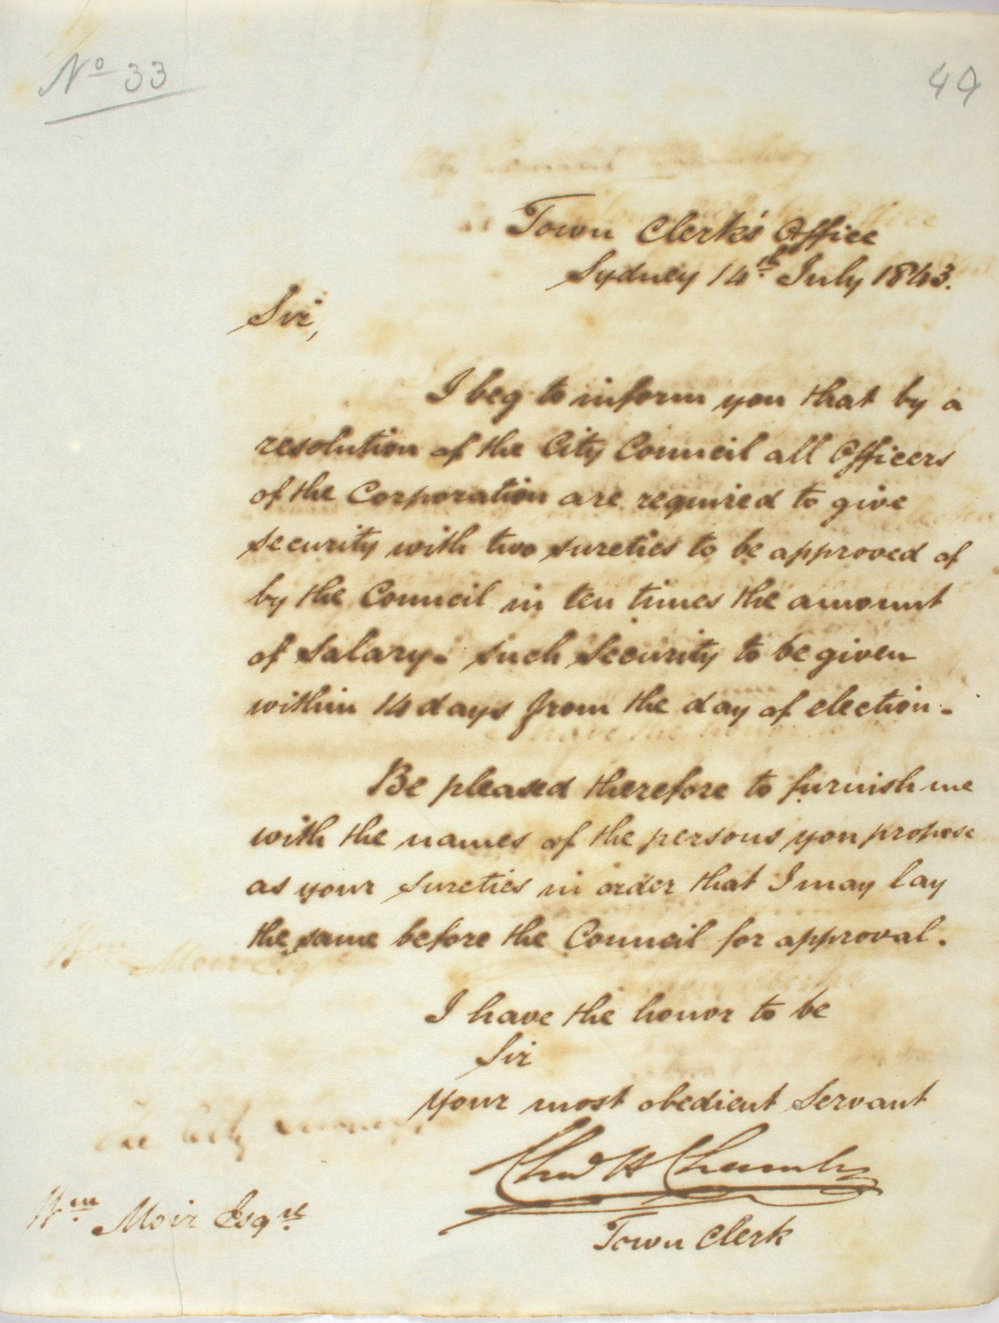 No 33
49
Town Clerk's Office
Sydney 14th July 1843.
Sir,
I beg to inform you that by a
resolution of the City Council all Officers
of the Corporation are required to give
security with two sureties to be approved of
by the Council in ten times the amount
of Salary. such Security to be given
within 14 days from the day of election.
Be pleased therefore to furnish me
with the names of the persons you propose
as your sureties in order that I may lay
the same before the Council for approval.
I have the honor to be
Sir
Your most obedient Servant
Chas H Chambers
Town Clerk
Wm Moir Esqre